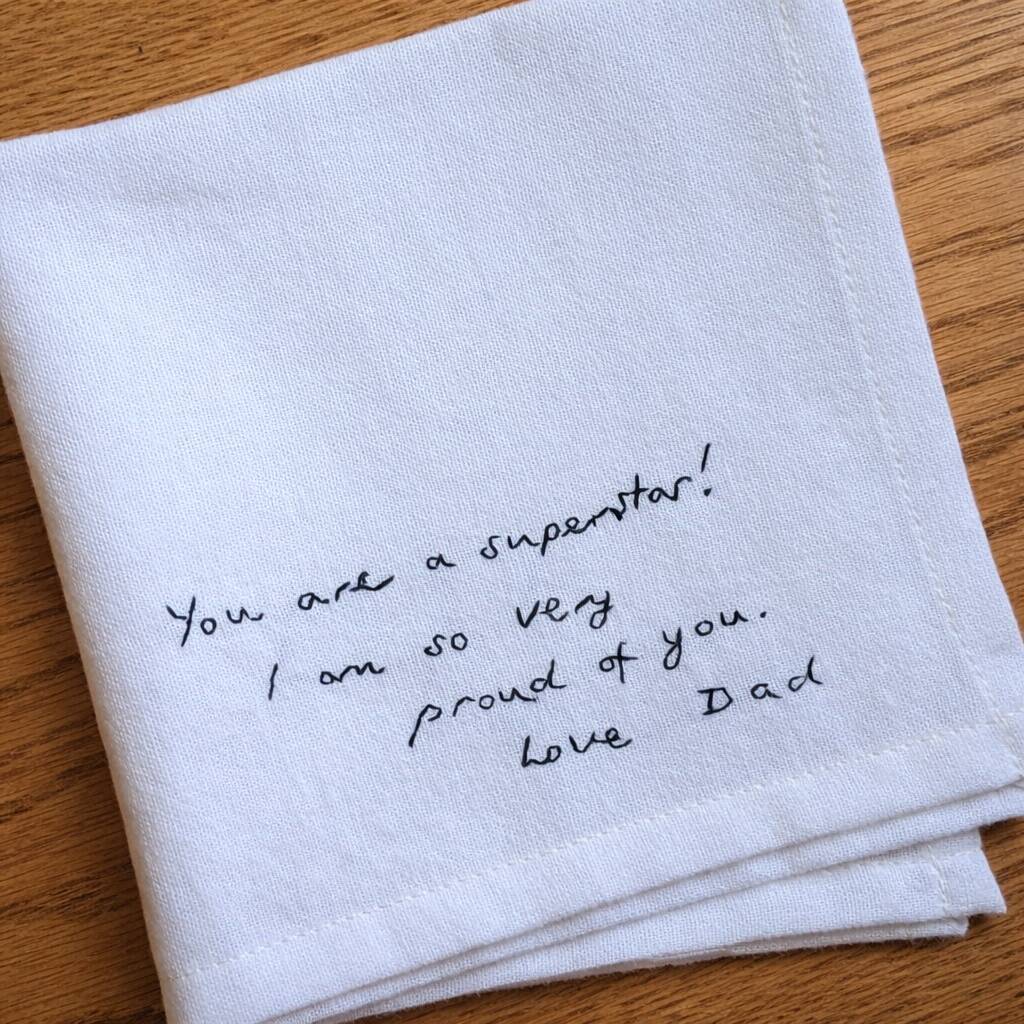 You are a superstar!
I am so very
proud of you.
Love Dad